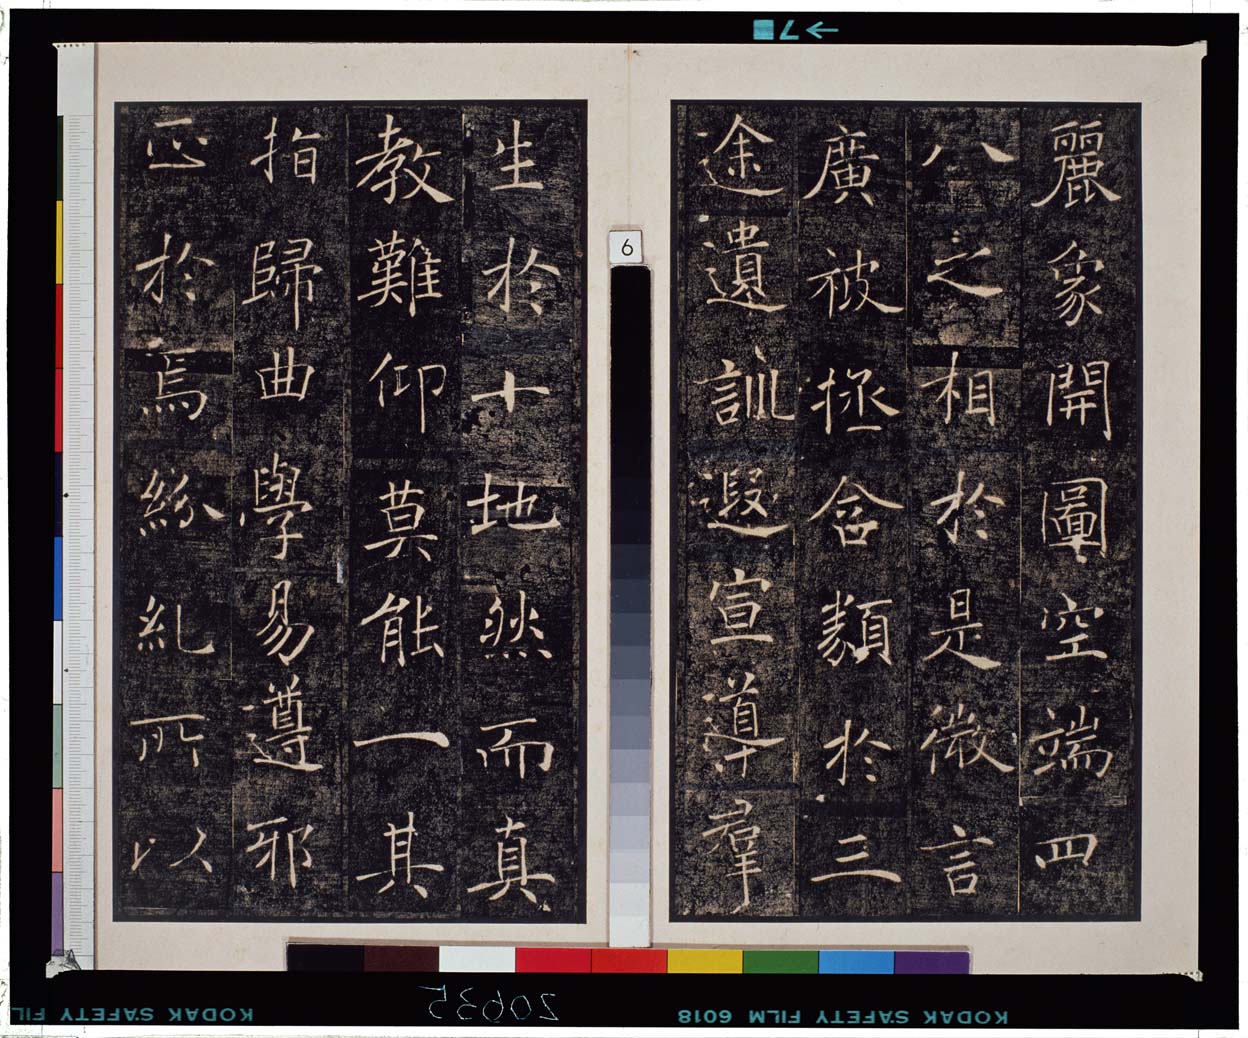 麗象開圖空端四
八之相於是微言
廣被拯含類於三
途遺訓遐宣導羣
生於十地然而真
教難仰莫能一其
指歸曲學易遵邪
正於焉紛糺所以
6
7
20635
KODAK SAFETY FILM 6018
KODAK SAFETY FIL